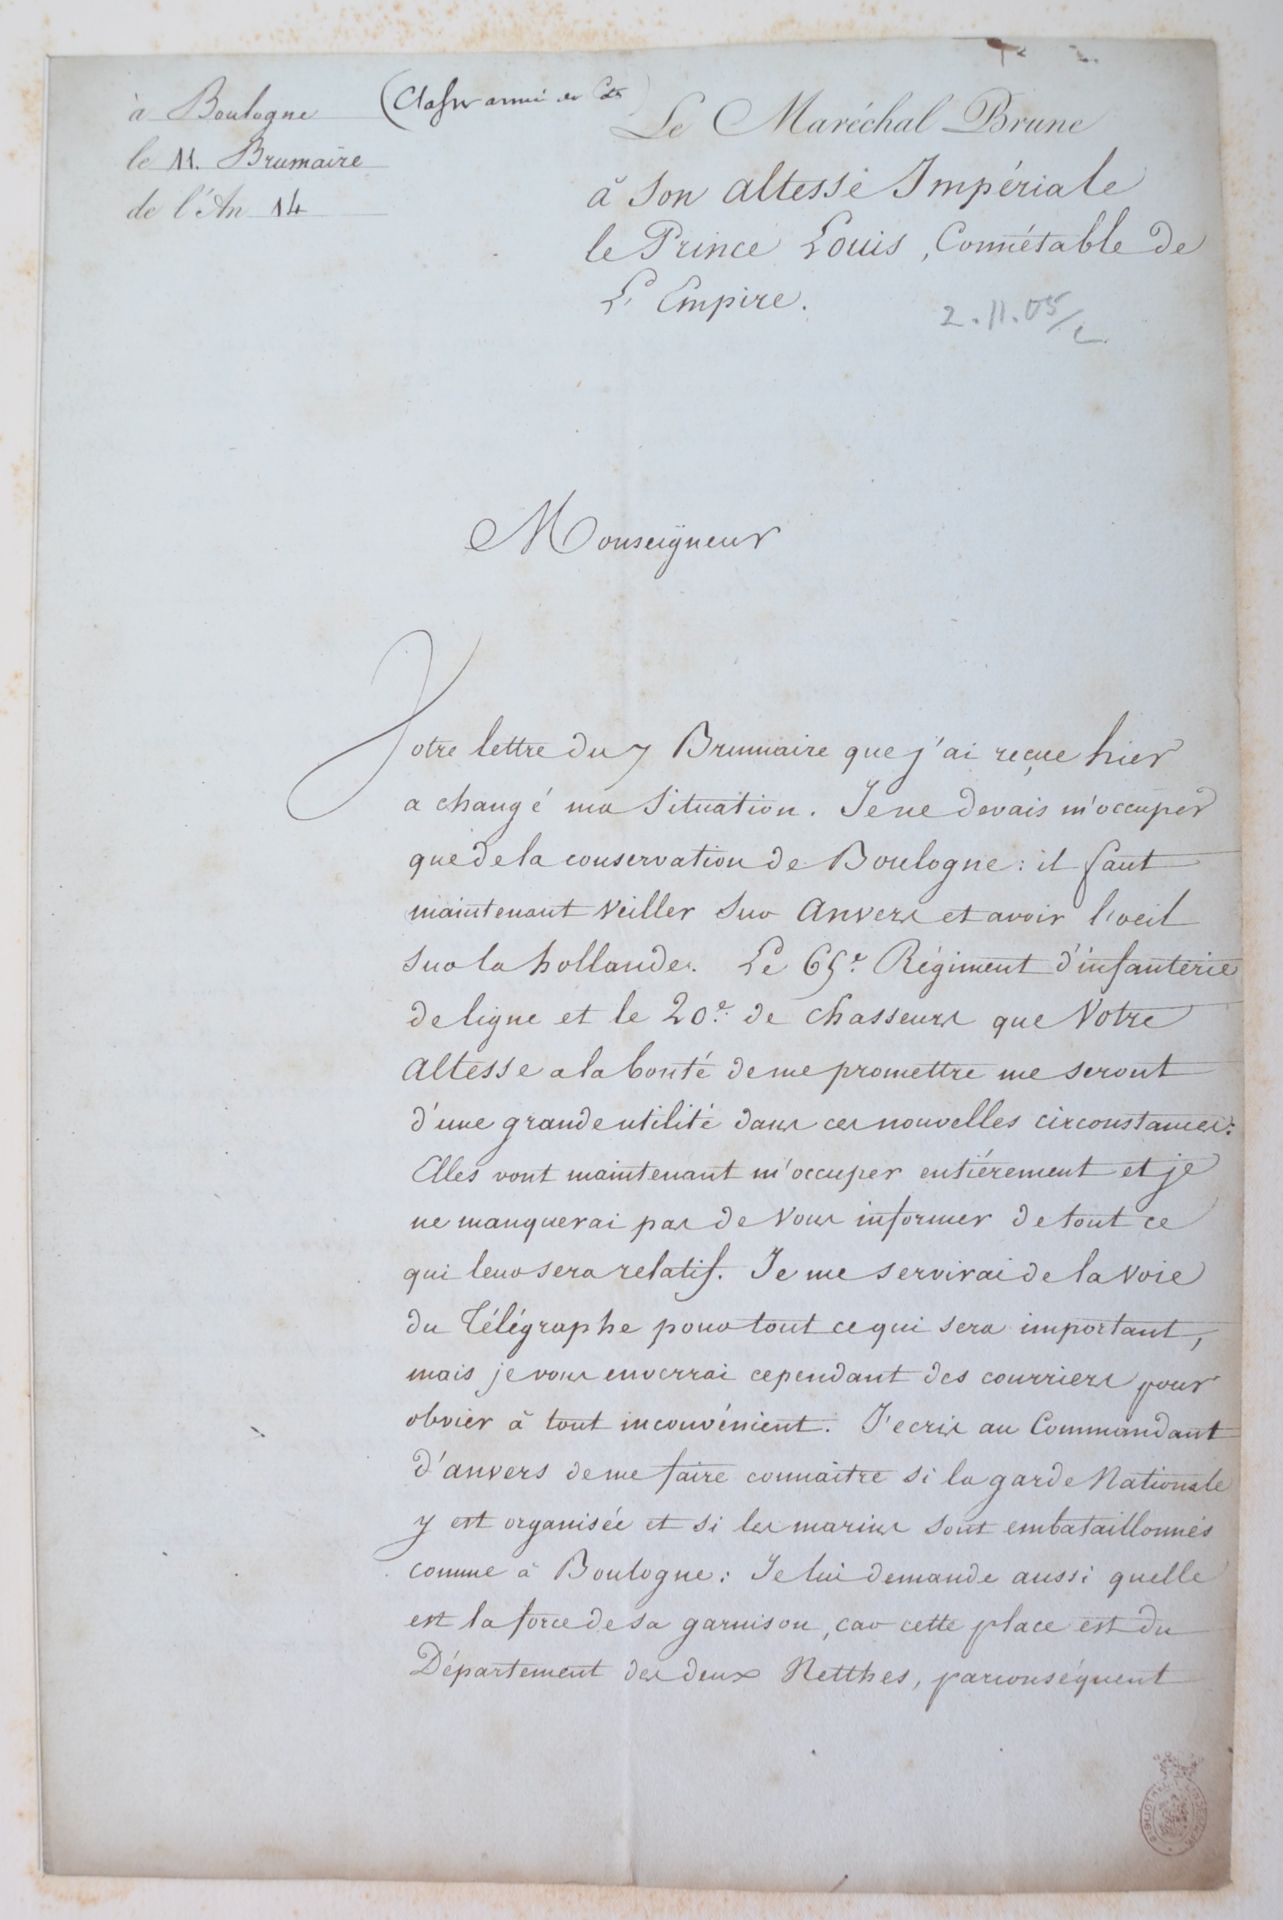 à Boulogne
le 11. Brumaire
de l'An 14
(Classer armée des Côtes)
Le Maréchal Brune
à Son altesse Impériale
le Prince Louis, Connétable de
L'Empire.
2.11.05/c
Monseigneur
Votre lettre du 7 Brumaire que j'ai reçue hier
a changé ma Situation. Je ne devais m'occuper
que de la conservation de Boulogne: il faut
maintenant veiller Sur Anvers et avoir l'oeil
Sur la hollande. Le 65e. Régiment d'infanterie
de ligne et le 20e. de chasseurs que Votre
Altesse a la bonté de me promettre me seront
d'une grande utilité dans ces nouvelles circonstances:
Elles vont maintenant m'occuper entiérement et je
ne manquerai pas de Vous informer de tout ce
qui leur sera relatif. Je me servirai de la Voie
du Télégraphe pour tout ce qui sera important,
mais je vous enverrai cependant des courriers pour
obvier à tout inconvénient. J'ecris au Commandant
d'anvers de me faire connaitre si la garde Nationale
y est organisée et si les marins sont embataillonnés
comme à Boulogne: Je lui demande aussi quelle
est la force de sa garnison, car cette place est du
Département des deux Netthes, parconséquent